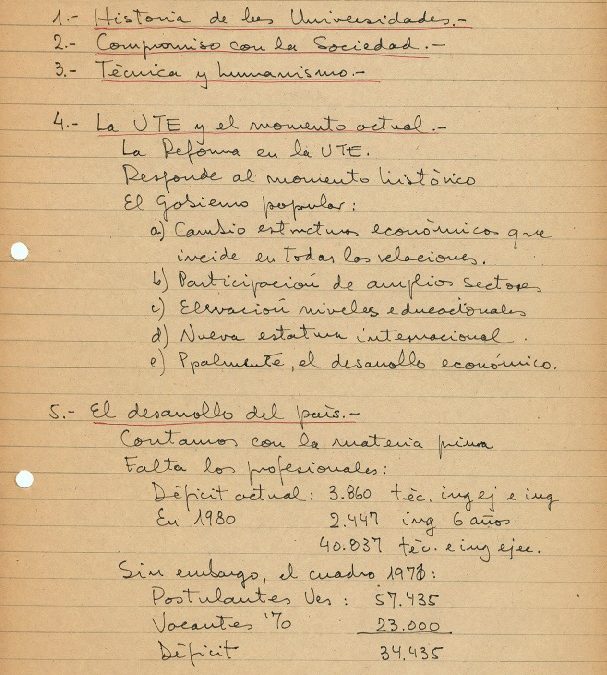 1.- Historia de las Universidades.-
2.- Compromiso con la Sociedad.-
3.- Técnica y humanismo.-
4.- La UTE y el momento actual.-
La Reforma en la UTE.
Responde al momento histórico
El Gobierno popular:
a) Cambio estructuras económicas que
incide en todas las relaciones.
b) Participación de amplios sectores
c) Elevación niveles educacionales
d) Nueva estatura internacional.
e) Ppalmente, el desarrollo económico.
5.- El desarrollo del país.-
Contamos con la materia prima
Falta los profesionales:
Déficit actual: 3.860 téc. ing ej e ing
En 1980 2.447 ing 6 años
40.837 téc. e ing ejec.
Sin embargo, el cuadro 1971:
Postulantes Ues: 57.435
Vacantes '70 23.000
Déficit 34.435